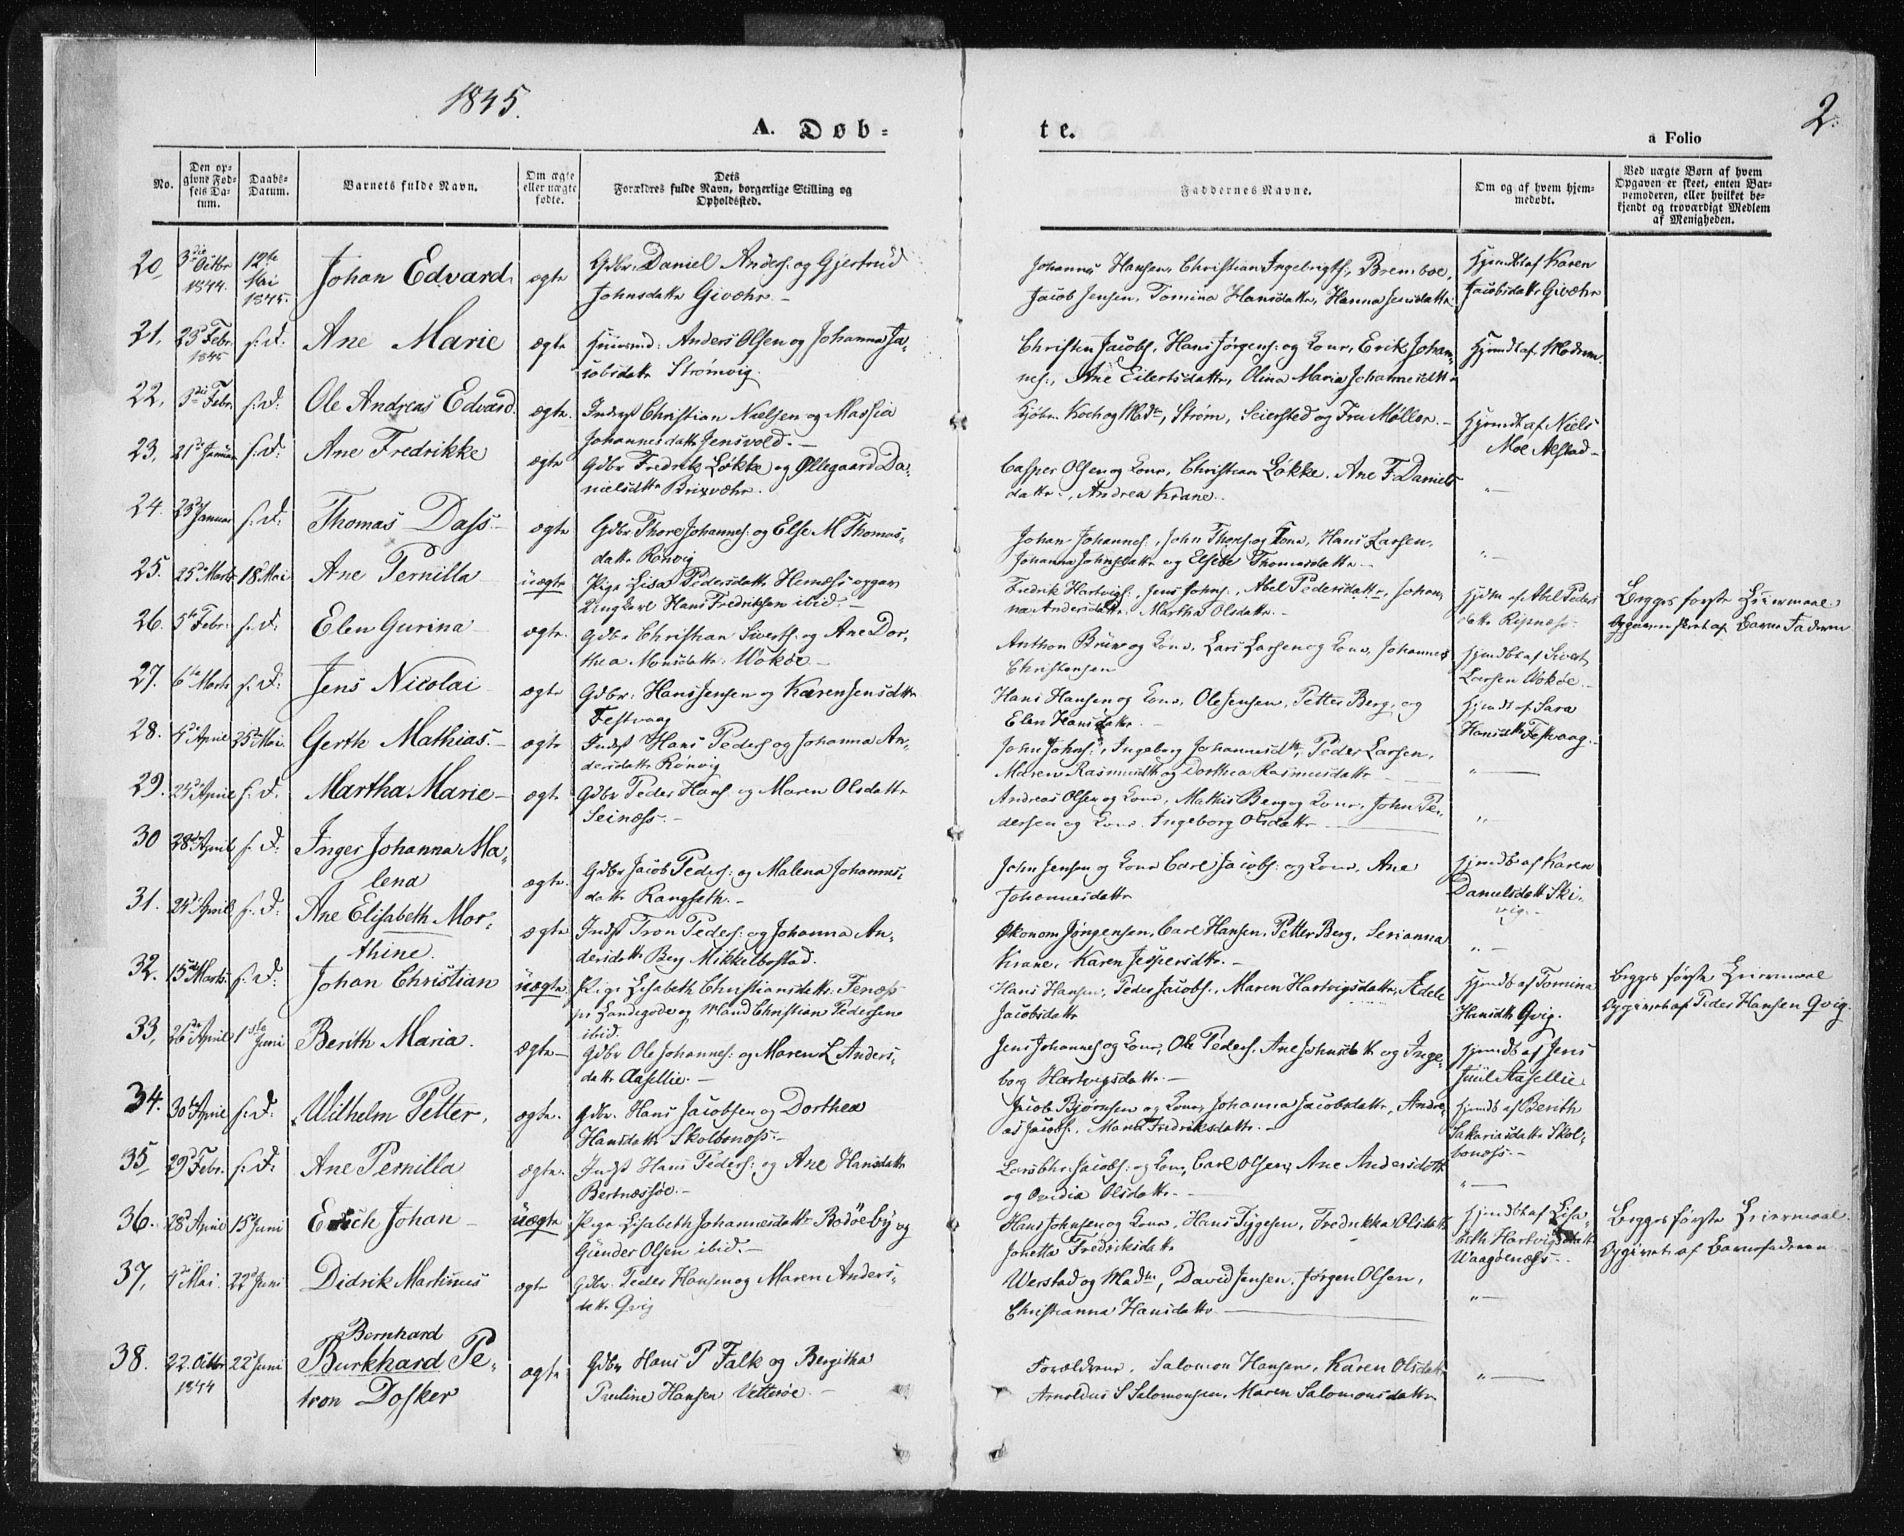 1845.
2.
A. Døb-
te.
a Folio
No.
Den op-
givne Fød-
sels Da-
tum.
Daabs-
Datum.
Barnets fulde Navn.
Om ægte
eller uægte
fødte.
Dets
Forældres fulde Navn, borgerlige Stilling og
Opholdssted.
Faddernes Navne.
Om og af hvem hjem-
medøbt.
Ved uægte Børn af hvem
Opgaven er skeet, enten Bar-
nemoderen, eller hvilket be-
kjendt og troværdigt Medlem
af Menigheden.
20 3die Octbr 1844. 12te Mai 1845. Johan Edvard. ægte Gdbr. Daniel Anders: og Gjertrud
Johnsdattr Givæhr.
Johannes Hansen, Christian Ingebrigts:, Bremboe,
Jacob Jensen, Tomina Hansdattr, Hanna Jensdattr.
Hjemdbt af Karen
Jacobsdattr Givæhr
21. 23 Febr. 1845 s: d: Ane Marie ægte Anders Olsen og Johanna Ja-
cobsdattr Strømvig.
Christen Jacobs:, Hans Jørgens: og Kone, Erik Johan-
nes:, Ane Eilertsdattr, Olina Maria Johannesdttr
Hjemdbt af Modren.
22. Febr. s: d: Ole Andreas Edvard. ægte. Indrst Christian Nielsen og Massia
Johannesdattr Jensvold.
Koch og Mad., Strøm, Seiersted og Fru Møller.
Hjemdbt af Niels
Moe Alstad
23. 21 Januar s: d: Ane Fredrikke ægte Gdbr Fredrik Løkke og Øllegaard Da-
nielsdttr Brixvæhr.
Casper Olsen og Kone, Christian Løkke, Ane F. Daniels-
dattr., Andrea Krane.
24. 23 Januar s: d: Thomas Dass ægte Gdbr Thore Johannes: og Else M Thomas-
dattr Rønvig
Johan Johannes:, John Thors: og Kone, Hans Larsen,
Johanna Johnsdattr og Elsebe Thomasdattr.
25. 25 Marts 18 Mai Ane Pernilla uægte Pige Lisa Pedersdattr Hernæs: og gav
Ungkarl Hans Fredriksen ibid.
Fredrik Hartvigs:, Jens Johns:, Abel Pedersdattr, Johan-
na Andersdattr, Martha Olsdattr.
Hjdm af Abel Peders
dattr Ripnæs
Begges første Leiermaal.
Opgaven skeet af Barne Faderen
26. 5te Febr. s: d: Elen Gurina ægte. Gdbr Christian Siverts: og Ane Dor-
thea Monsdattr. Wokøe
Anthon Brun og Kone, Lars Larsen og Kone, Johannes
Christensen
Hjemdbt af Sivert
Larsen Wokøe.
27. 6te Marts s: d: Jens Nicolai ægte Gdbr: Hans Jensen og Karen Jensdttr
Festvaag
Hans Hansen og Kone, Ole Jensen, Petter Berg, og
Elen Hansdattr.
Hjemdt af Sara
Hansdttr Festvaag.
28. 4 April 25 Mai Gerth Mathias. ægte Indst Hans Peders: og Johanna An-
dersdattr Rønvig
John Johns:, Ingeborg Johannesdttr, Peder Larsen,
Maren Rasmusdttr og Dorthea Rasmusdattr
29. 25 April s: d: Martha Marie ægte Gdbr Peder Hans: og Maren Olsdattr
Seinæss.
Andreas Olsen og Kone, Mathis Berg og Kone, John Pe-
dersen og Kone, Ingeborg Olsdattr.
30 28 April s: d: Inger Johanna Ma-
lena ægte. Gdbr Jacob Peders: og Malena Johannes-
dattr Rangseth.
John Jensen og Kone Carl Jacobs: og Kone, Ane
Johannesdattr
Hjemdb af Karen
Danielsdattr Ski-
vig.
31. 24 April s: d: Ane Elisabeth Mor-
thine. ægte Indst Tron Peders: og Johanna An-
dersdattr Berg Mikkelbostad.
Økonom Jørgensen, Carl Hansen, Petter Berg, Serianna
Krane, Karen Jespersdttr.
32. 15 Marts s: d: Johan Christian uægte Pige Lisabeth Christiansdattr Fenæss
pr Landegode og Mand Christian Pedersen
ibid.
Hans Hansen, Peder Jacobs:, Maren Hartvigsdattr, Adele
Jacobsdattr
Hjemdb af Tomina
Hansdttr Qvig.
Begges første Leiermaal
Opgivet af Peder Hansen Qvig.
33. 26 April 1ste Juni Berith Maria. ægte Gdbr Ole Johannes: og Maren L Anders-
dattr Aasellie.
Jens Johannes og Kone, Ole Peders:, Ane Johnsdattr og Inge-
borg Hartvigsdattr.
Hjemdb af Jens
Juul Aasellie
34. 30 April s: d: Wilhelm Petter, ægte. Gdbr. Hans Jacobsen og Dorthea
Hansdattr Skolbenæss.
Jacob Bjørnsen og Kone, Johanna Jacobsdattr, Andre-
as Jacobs:, Maria Fredriksdattr.
Hjemdb af Berith
Sakariasdattr Skol-
benæss.
35 29 Febr. s: d: Ane Pernilla ægte. Indst Hans Peders: og Ane Hansdattr
Bertnæssøe.
Lars Chr. Jacobs: og Kone, Carl Olsen, Ane Andersdattr
og Ovidia Olsdattr.
36. 28 April 15 Juni Erich Johan uægte Pige Lisabeth Johannesdattr Bodøeby og
Gunder Olsen ibid.
Hans Johnsen og Kone, Hans Tygesen, Fredrikka Olsdattr
Johetta Fredriksdattr
Hjemdbt af Lisa-
beth Hartvigsdattr
Waagøenæss.
Begges første Leiermaal.
Opgivet af Barnefaderen
37. 4 Mai. 22 Juni Didrik Martinus ægte Gdbr. Peder Hansen og Maren Anders-
dattr Qvig
Werstad og Mad., David Jensen, Jørgen Olsen,
Christianna Hansdattr
38. 22. Octbr 1844 22 Juni Bernhard
Burkhard Pe-
tron Dosker ægte Gdbr Hans P Falk og Bergitha
Pauline Hansen Vetterøe.
Forældrene, Salomon Hansen, Karen Olsdattr
Arnoldus S Salomonsen, Maren Salomonsdattr